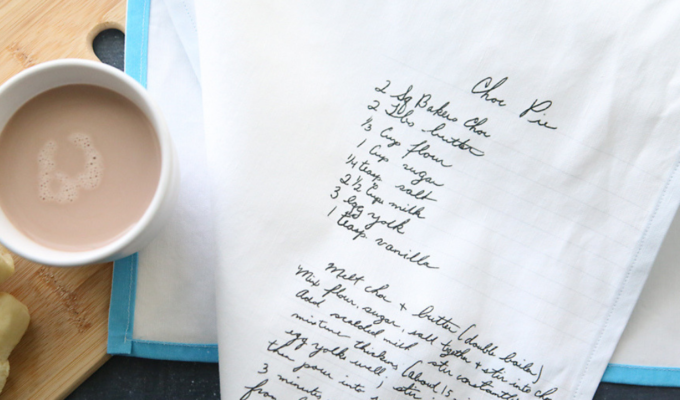 Choc Pie
2 Sq Bakers Choc
2 Tbs butter
1/3 Cup flour
1 Cup sugar
1/4 teasp salt
2 1/2 Cups milk
3 egg yolk
1 teasp vanilla
Melt choc + butter (double boiler)
Mix flour, sugar, salt togeth + stir into choc
Add scalded milk stir constantly
mixture thickens (about 15
egg yolks well, stir
then pour into
3 minutes
from